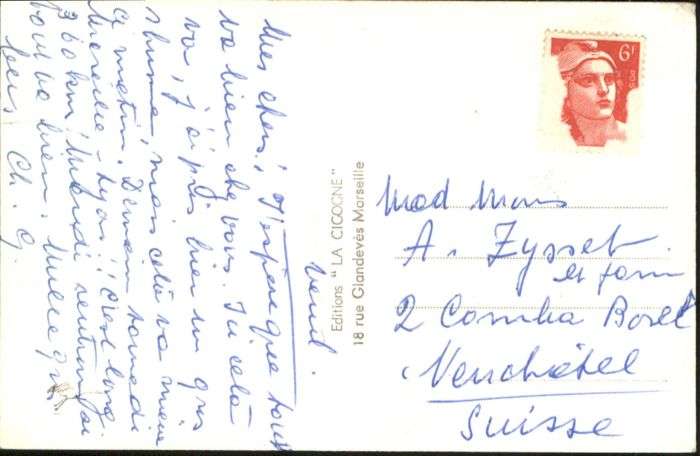 vendredi.
Mes chers, J'espère que tout
va bien chez vous. Ici cela
va, j'ai pris hier un gros
rhume, mais cela va mieux
ce matin. Demain samedi
Marseille - Lyon, c'est long
360 km,
tout va bien. Mille
Ch. G.
Editions "LA CICOGNE"
18 rue Glandevès Marseille
6F
Mad Mons
A. Zysset
et fam
2 Comba Borel
Neuchâtel
Suisse